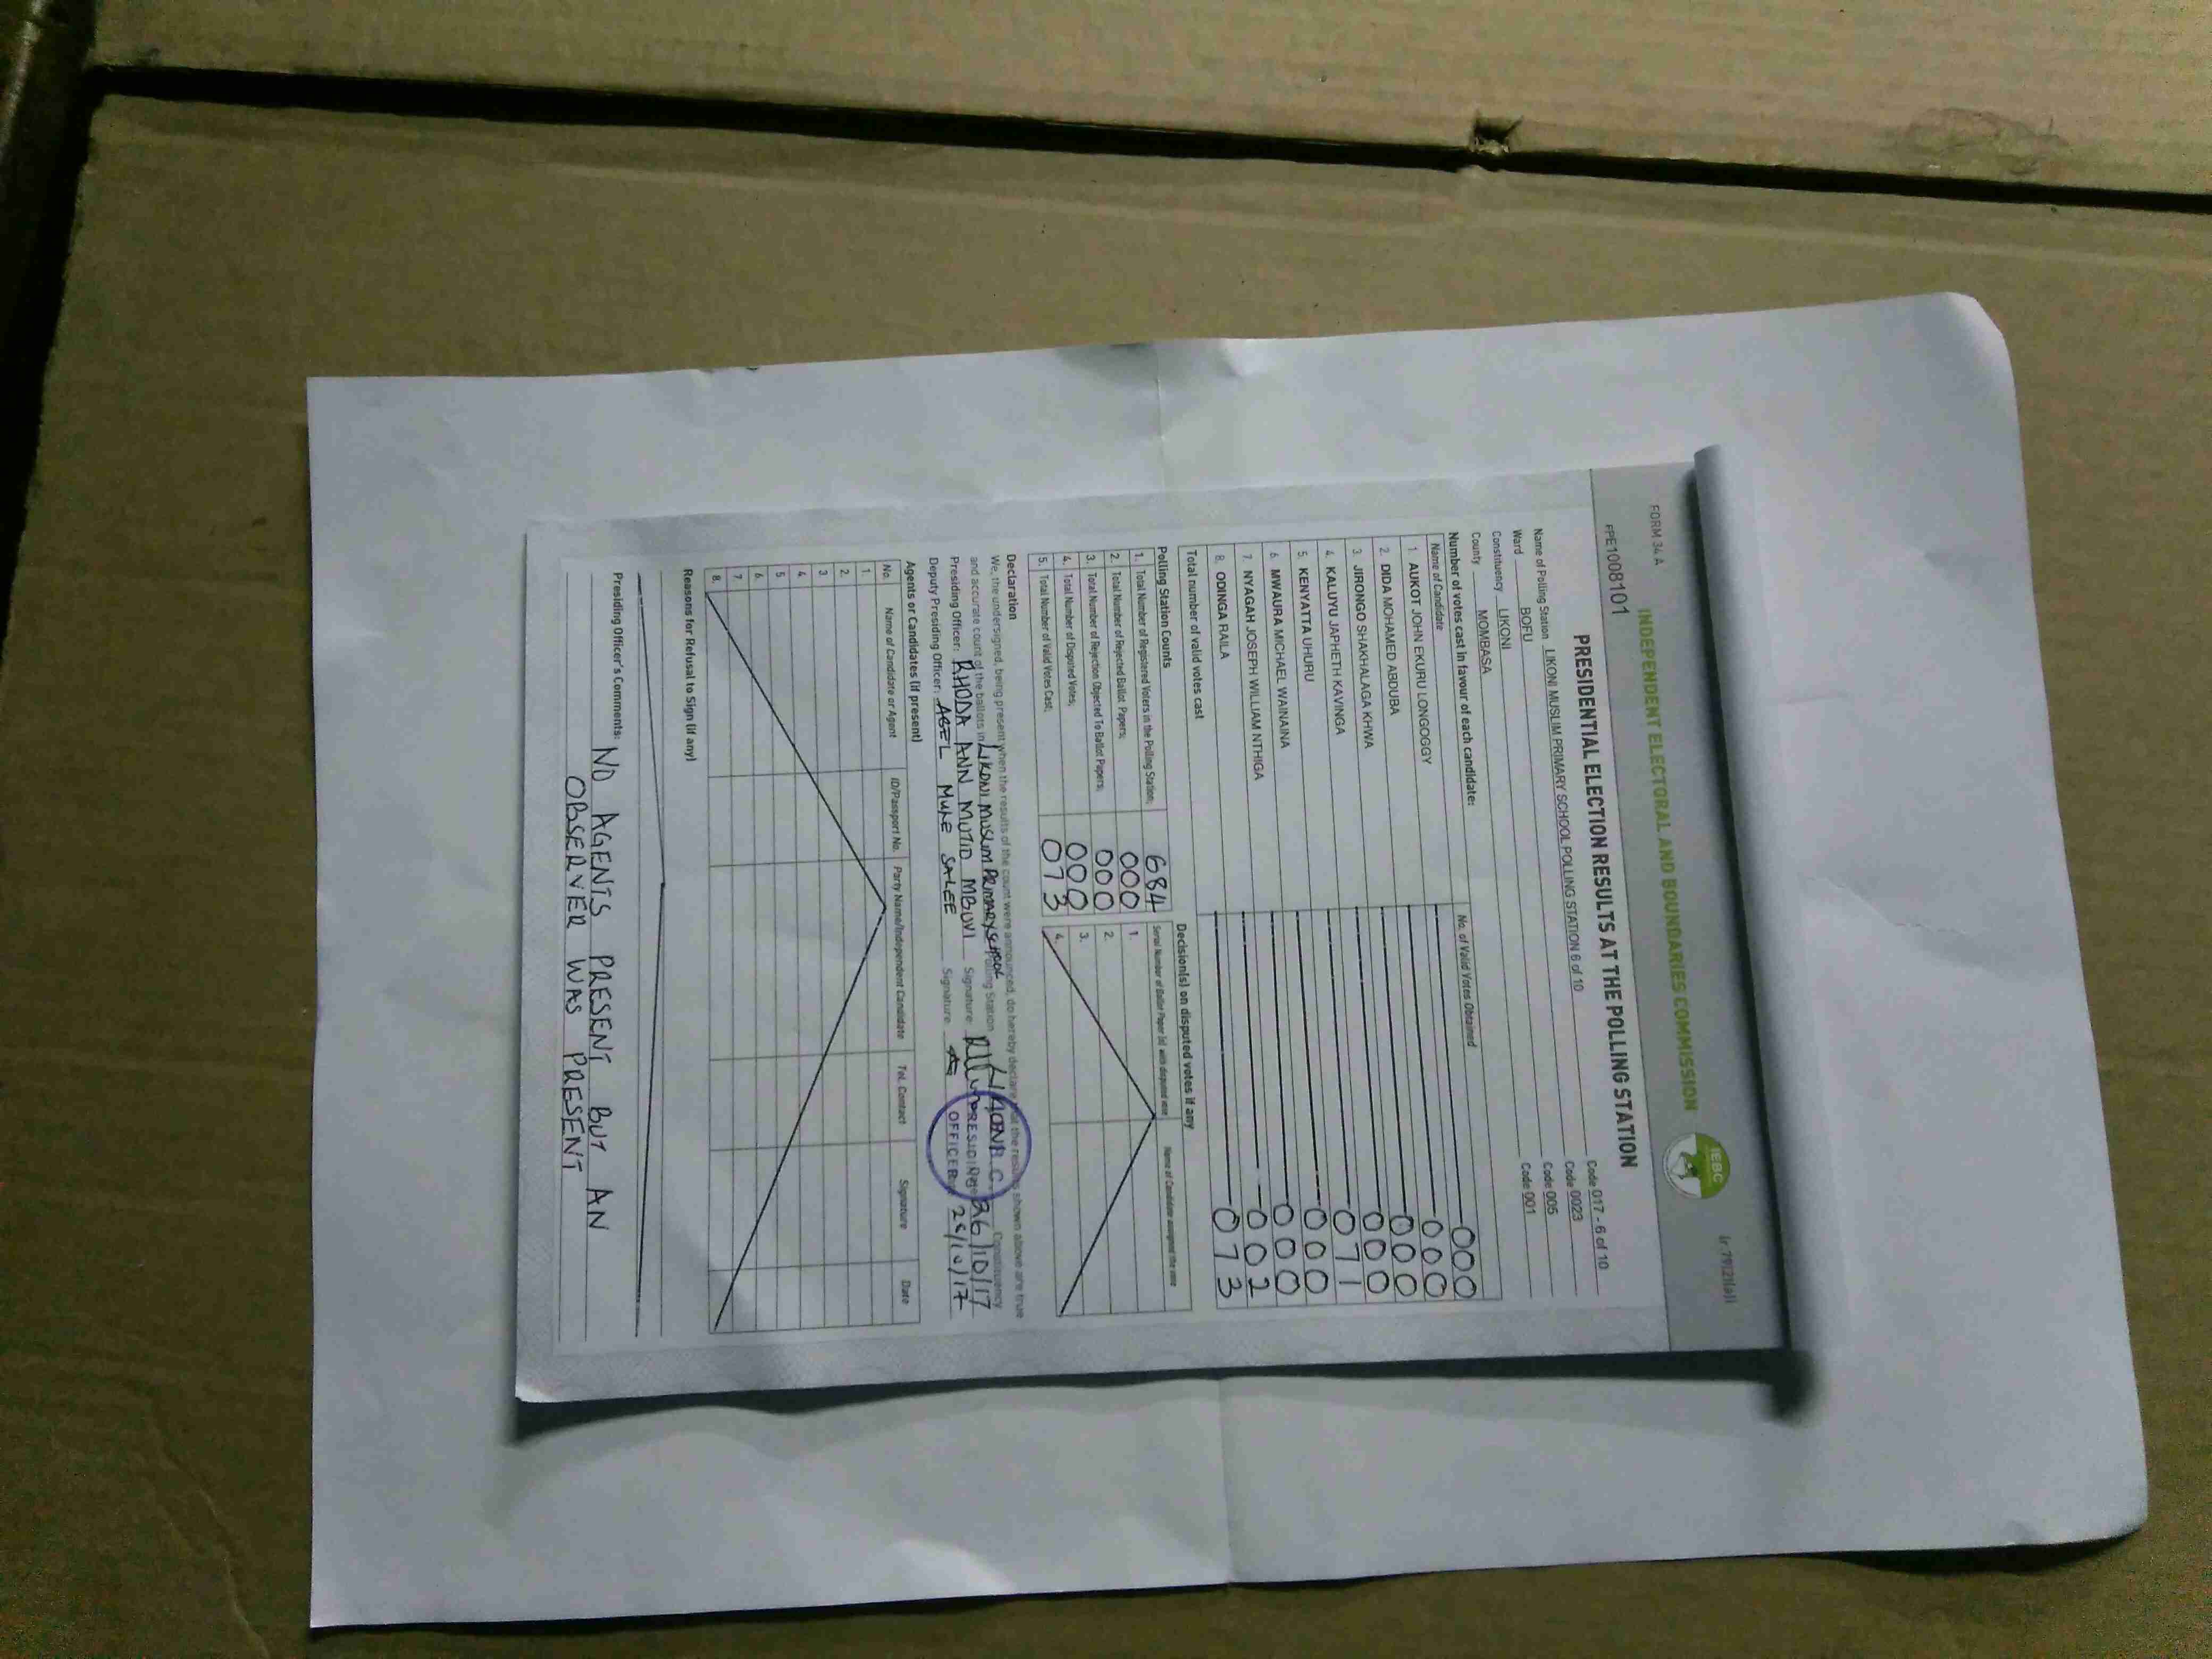 FORM 34 A
(r.79(2)(a))
INDEPENDENT ELECTORAL AND BOUNDARIES COMMISSION
IEBC
PPE1008101
PRESIDENTIAL ELECTION RESULTS AT THE POLLING STATION
Name of Polling Station LIKONI MUSLIM PRIMARY SCHOOL POLLING STATION 6 of 10 Code 017 - 6 of 10
Ward BOFU Code 0023
Constituency LIKONI Code 005
County MOMBASA Code 001
Number of votes cast in favour of each candidate:
Name of Candidate No. of Valid Votes Obtained
1. AUKOT JOHN EKURU LONGOGGY 000
2. DIDA MOHAMED ABDUBA 000
3. JIRONGO SHAKHALAGA KHWA 000
4. KALUYU JAPHETH KAVINGA 000
5. KENYATTA UHURU 071
6. MWAURA MICHAEL WAINAINA 000
7. NYAGAH JOSEPH WILLIAM NTHIGA 000
8. ODINGA RAILA 002
Total number of valid votes cast 073
Polling Station Counts Decision(s) on disputed votes if any
1. Total Number of Registered Voters in the Polling Station; 684
2. Total Number of Rejected Ballot Papers; 000
3. Total Number of Rejection Objected To Ballot Papers; 000
4. Total Number of Disputed Votes; 000
5. Total Number of Valid Votes Cast; 073
Serial Number of Ballot Paper (s) with disputed vote Name of Candidate assigned the vote
1.
2.
3.
4.
Declaration
We, the undersigned, being present when the results of the count were announced, do hereby declare that the results shown above are true
and accurate count of the ballots in LIKONI MUSLIM PRIMARY SCHOOL Polling Station LIKONI Constituency
Presiding Officer: RHODA ANN MUTIO MBUVI Signature 26/10/17
Deputy Presiding Officer: ABEL MULE SALEE Signature 26/10/17
PRESIDING
OFFICER
Agents or Candidates (if present)
No. Name of Candidate or Agent ID/Passport No. Party Name/Independent Candidate Tel. Contact Signature Date
1.
2.
3.
4.
5.
6.
7.
8.
Reasons for Refusal to Sign (if any)
Presiding Officer's Comments: NO AGENTS PRESENT BUT AN
OBSERVER WAS PRESENT